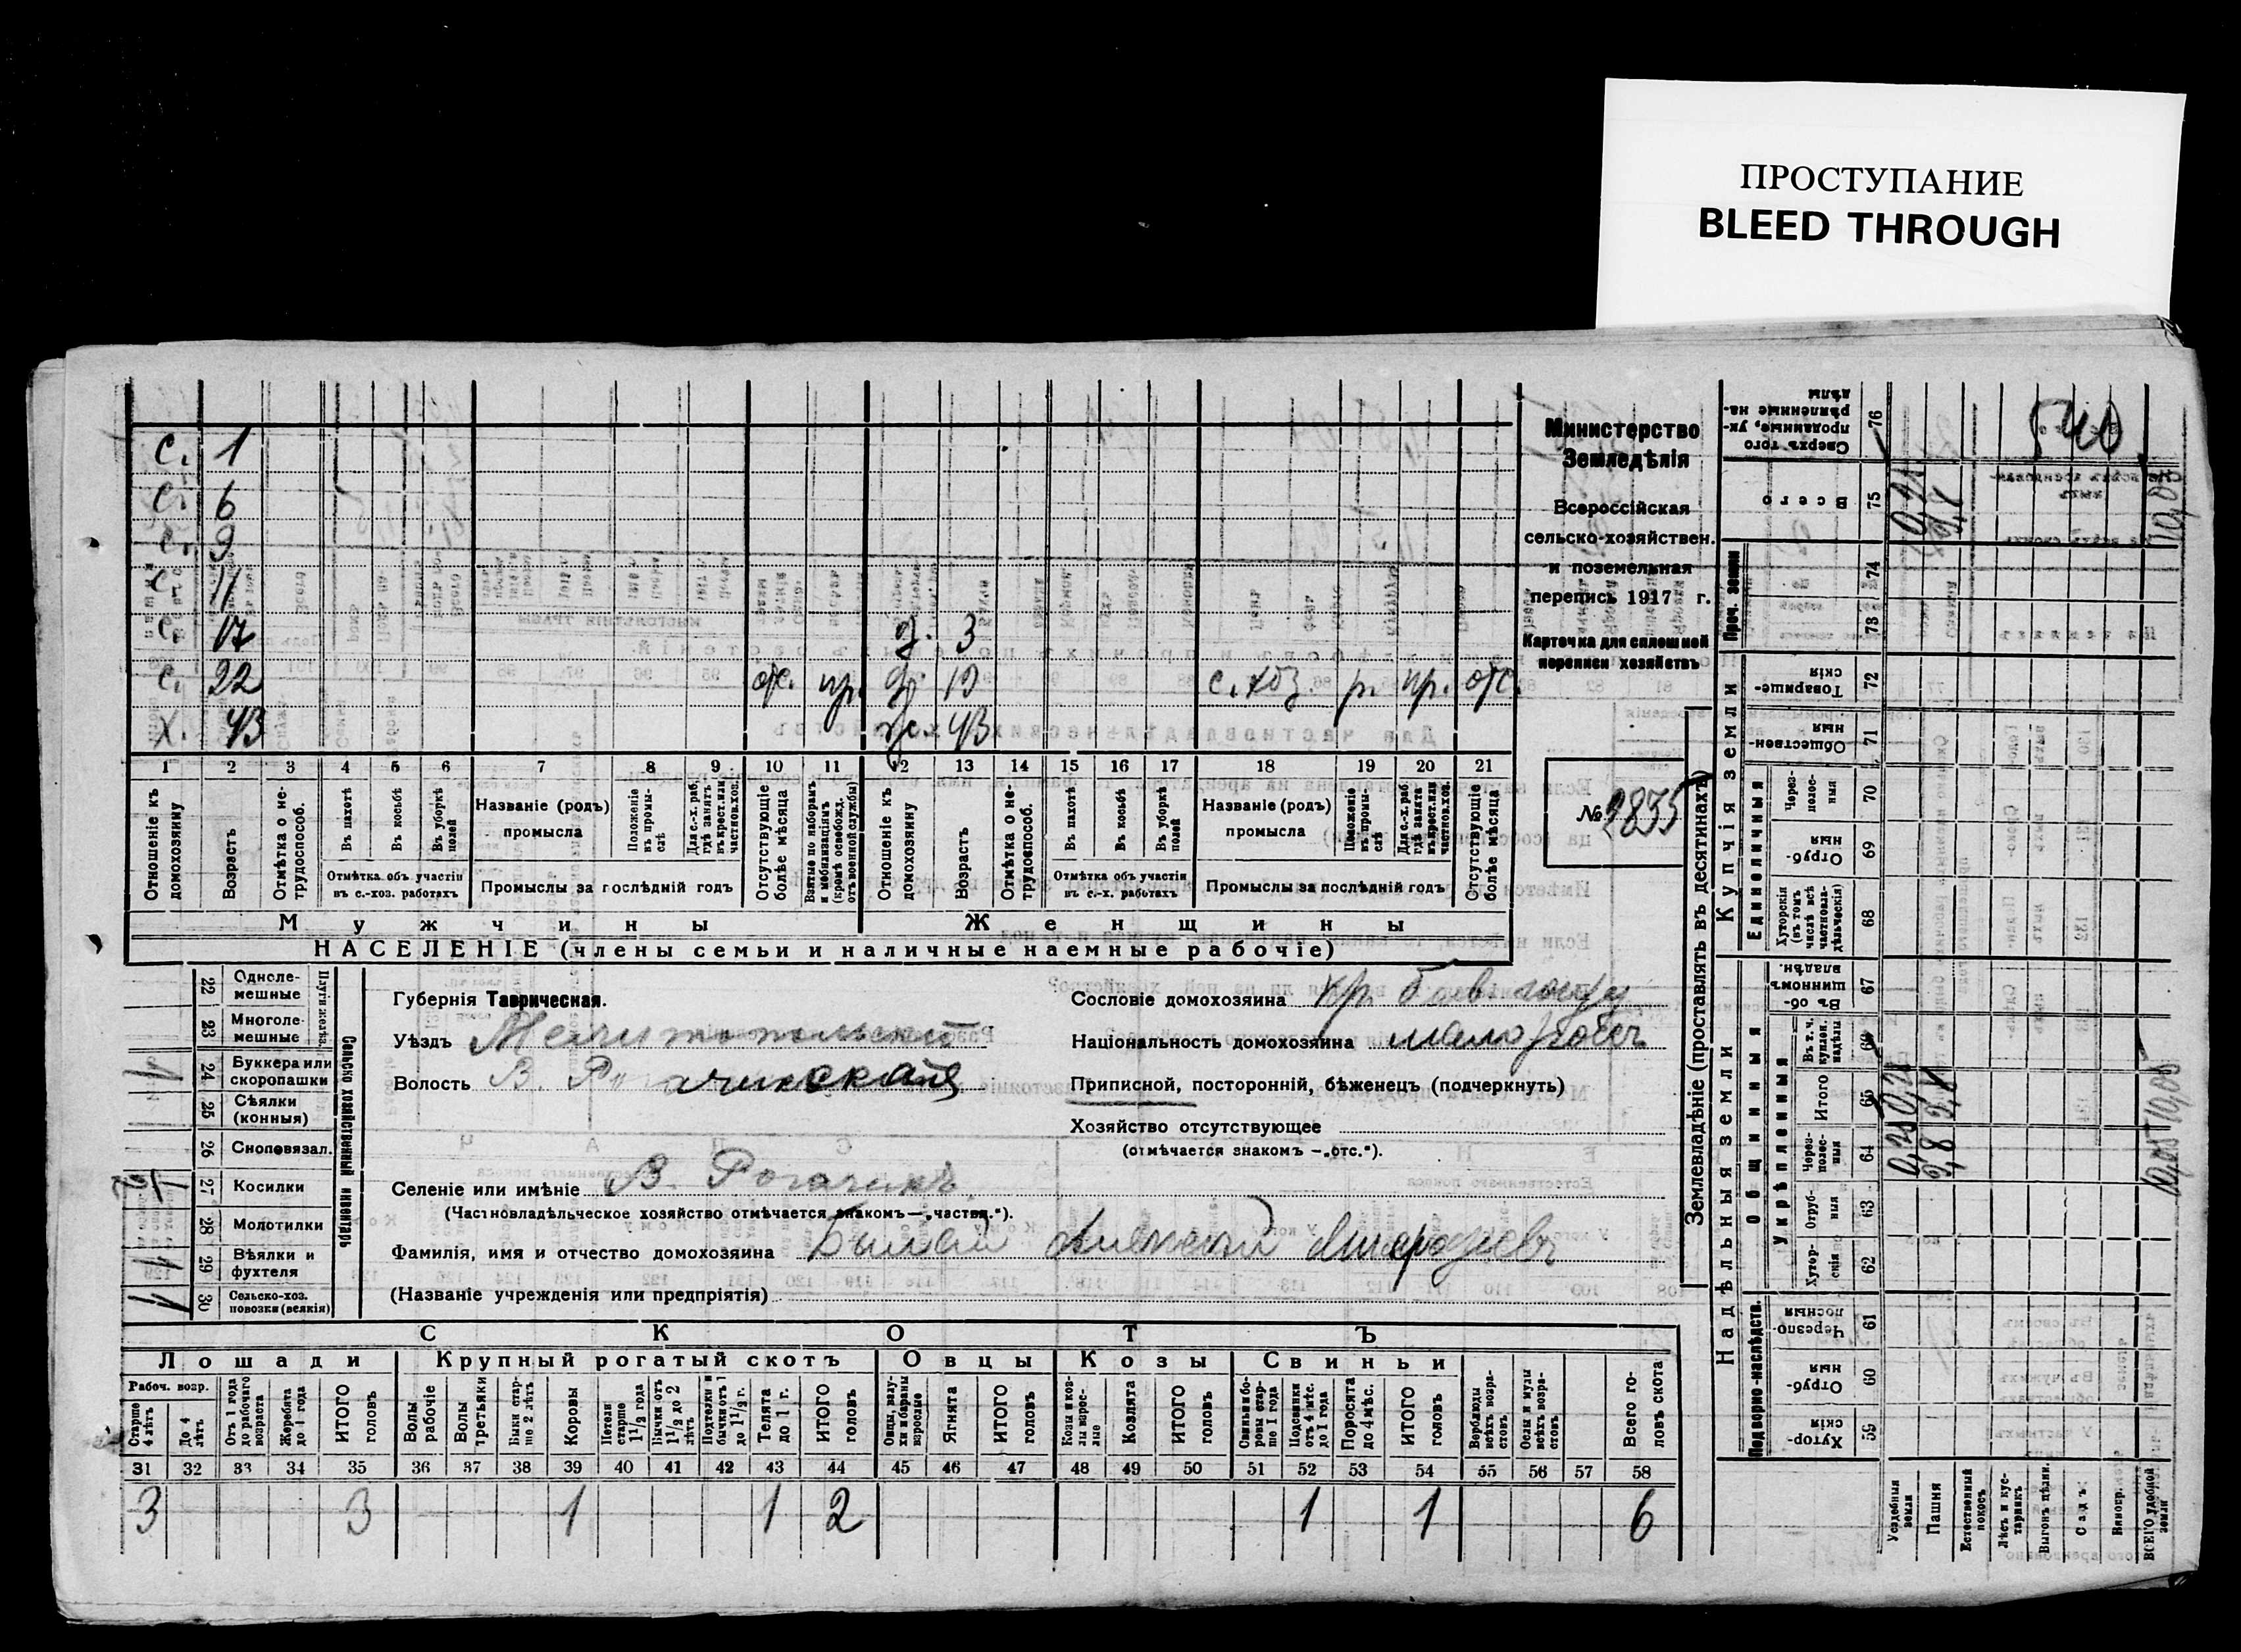 ПРОСТУПАНИЕ
BLEED THROUGH
540
с. 1
с. 6
с. 9
с. 11
с. 17 д. 3
с. 22 отс. пр. д. 19 с.хоз. р. пр. отс.
х. 43 ж. 43
1 2 3 4 5 6 7 8 9 10 11 12 13 14 15 16 17 18 19 20 21
Отношеніе къ домохозяину
Возрастъ
Отмѣтка о нетрудоспособ.
Въ пахотѣ
Въ косьбѣ
Въ уборкѣ полей
Отмѣтка объ участіи въ с.-хоз. работахъ
Названіе (родъ) промысла
Положеніе въ промыслѣ
Для с.-х. раб. гдѣ занятъ въ крест. или частнов. хоз.
Промыслы за послѣдній годъ
Отсутствующіе болѣе мѣсяца
Взятые по наборамъ и мобилизаціямъ (кромѣ освобожд. отъ военной службы)
Отношеніе къ домохозяину
Возрастъ
Отмѣтка о нетрудоспособ.
Въ пахотѣ
Въ косьбѣ
Въ уборкѣ полей
Отмѣтка объ участіи въ с.-х. работахъ
Названіе (родъ) промысла
Положеніе въ промыслѣ
Для с.-х. раб. гдѣ занята въ крест. или частнов. хоз.
Промыслы за послѣдній годъ
Отсутствующіе болѣе мѣсяца
Мужчины Женщины
НАСЕЛЕНІЕ (члены семьи и наличные наемные рабочіе)
Министерство
Земледѣлія
Всероссійская
сельско-хозяйствен.
и поземельная
перепись 1917 г.
Карточка для сплошной
переписи хозяйствъ
№ 2835
Сельско хозяйственный инвентарь
Плуги желѣз.
22 Одноле-
мешные
23 Многоле-
мешные
24 Буккера или
скоропашки
25 Сѣялки
(конныя)
26 Сноповязал.
27 Косилки
28 Молотилки
29 Вѣялки и
фухтеля
30 Сельско-хоз.
повозки (всякія)
Губернія Таврическая.
Уѣздъ Мелитопольскій
Волость В. Рогачикская
Сословіе домохозяина кр.
Національность домохозяина малоросъ
Приписной, посторонній, бѣженецъ (подчеркнуть)
Хозяйство отсутствующее
(отмѣчается знакомъ —„отс.“).
Селеніе или имѣніе В. Рогачикъ
(Частновладѣльческое хозяйство отмѣчается знакомъ—„частвл.“).
Фамилія, имя и отчество домохозяина Алексѣй
(Названіе учрежденія или предпріятія)
СКОТЪ
Лошади Крупный рогатый скотъ Овцы Козы Свиньи
Рабоч. возр.
Старше 4 лѣтъ
До 4 лѣтъ
Отъ 1 года до рабочаго возраста
Жеребята до 1 года
ИТОГО головъ
Волы рабочіе
Волы третьяки
Быки старше 2 лѣтъ
Коровы
Нетели старше 1 1/2 года
Бычки отъ 1 1/2 до 2 лѣтъ
Подтелки и бычки отъ 1 до 1 1/2 г.
Телята до 1 г.
ИТОГО головъ
Овцы, валухи и бараны взрослые
Ягнята
ИТОГО головъ
Козы и козлы взрослые
Козлята
ИТОГО головъ
Свиньи и боровы старше 1 года
Подсвинки отъ 4 мѣс. до 1 года
Поросята до 4 мѣс.
ИТОГО головъ
Верблюды всѣхъ возрастовъ
Ослы и мулы всѣхъ возрастовъ
Всего головъ скота
31 32 33 34 35 36 37 38 39 40 41 42 43 44 45 46 47 48 49 50 51 52 53 54 55 56 57 58
3 3 1 1 2 1 1 6
Землевладѣніе (проставлять въ десятинахъ)
Надѣльныя земли Купчія земли Проч. земли
Подворно-наслѣдств.
Общинныя
Укрѣпленныя
Единоличныя
59 Хуторскія
60 Отрубныя
61 Черезполосныя
62 Хуторскія
63 Отрубныя
64 Черезполосныя
65 Итого
66 Въ т. ч. куплен. надѣлы
67 Въ общинномъ владѣн.
68 Хуторскія (въ томъ числѣ всѣ частновладѣльческія)
69 Отрубныя
70 Черезполосныя
71 Общественныя
72 Товарищескія
73
74
75 Всего
76 Сверхъ того проданные, укрѣпленные надѣлы
Усадебныя земли
Пашня
Естественный покосъ
Лѣсъ и кустарникъ
Выгонъ цѣлин.
Садъ.
Виногр.
ВСЕГО удобной земли